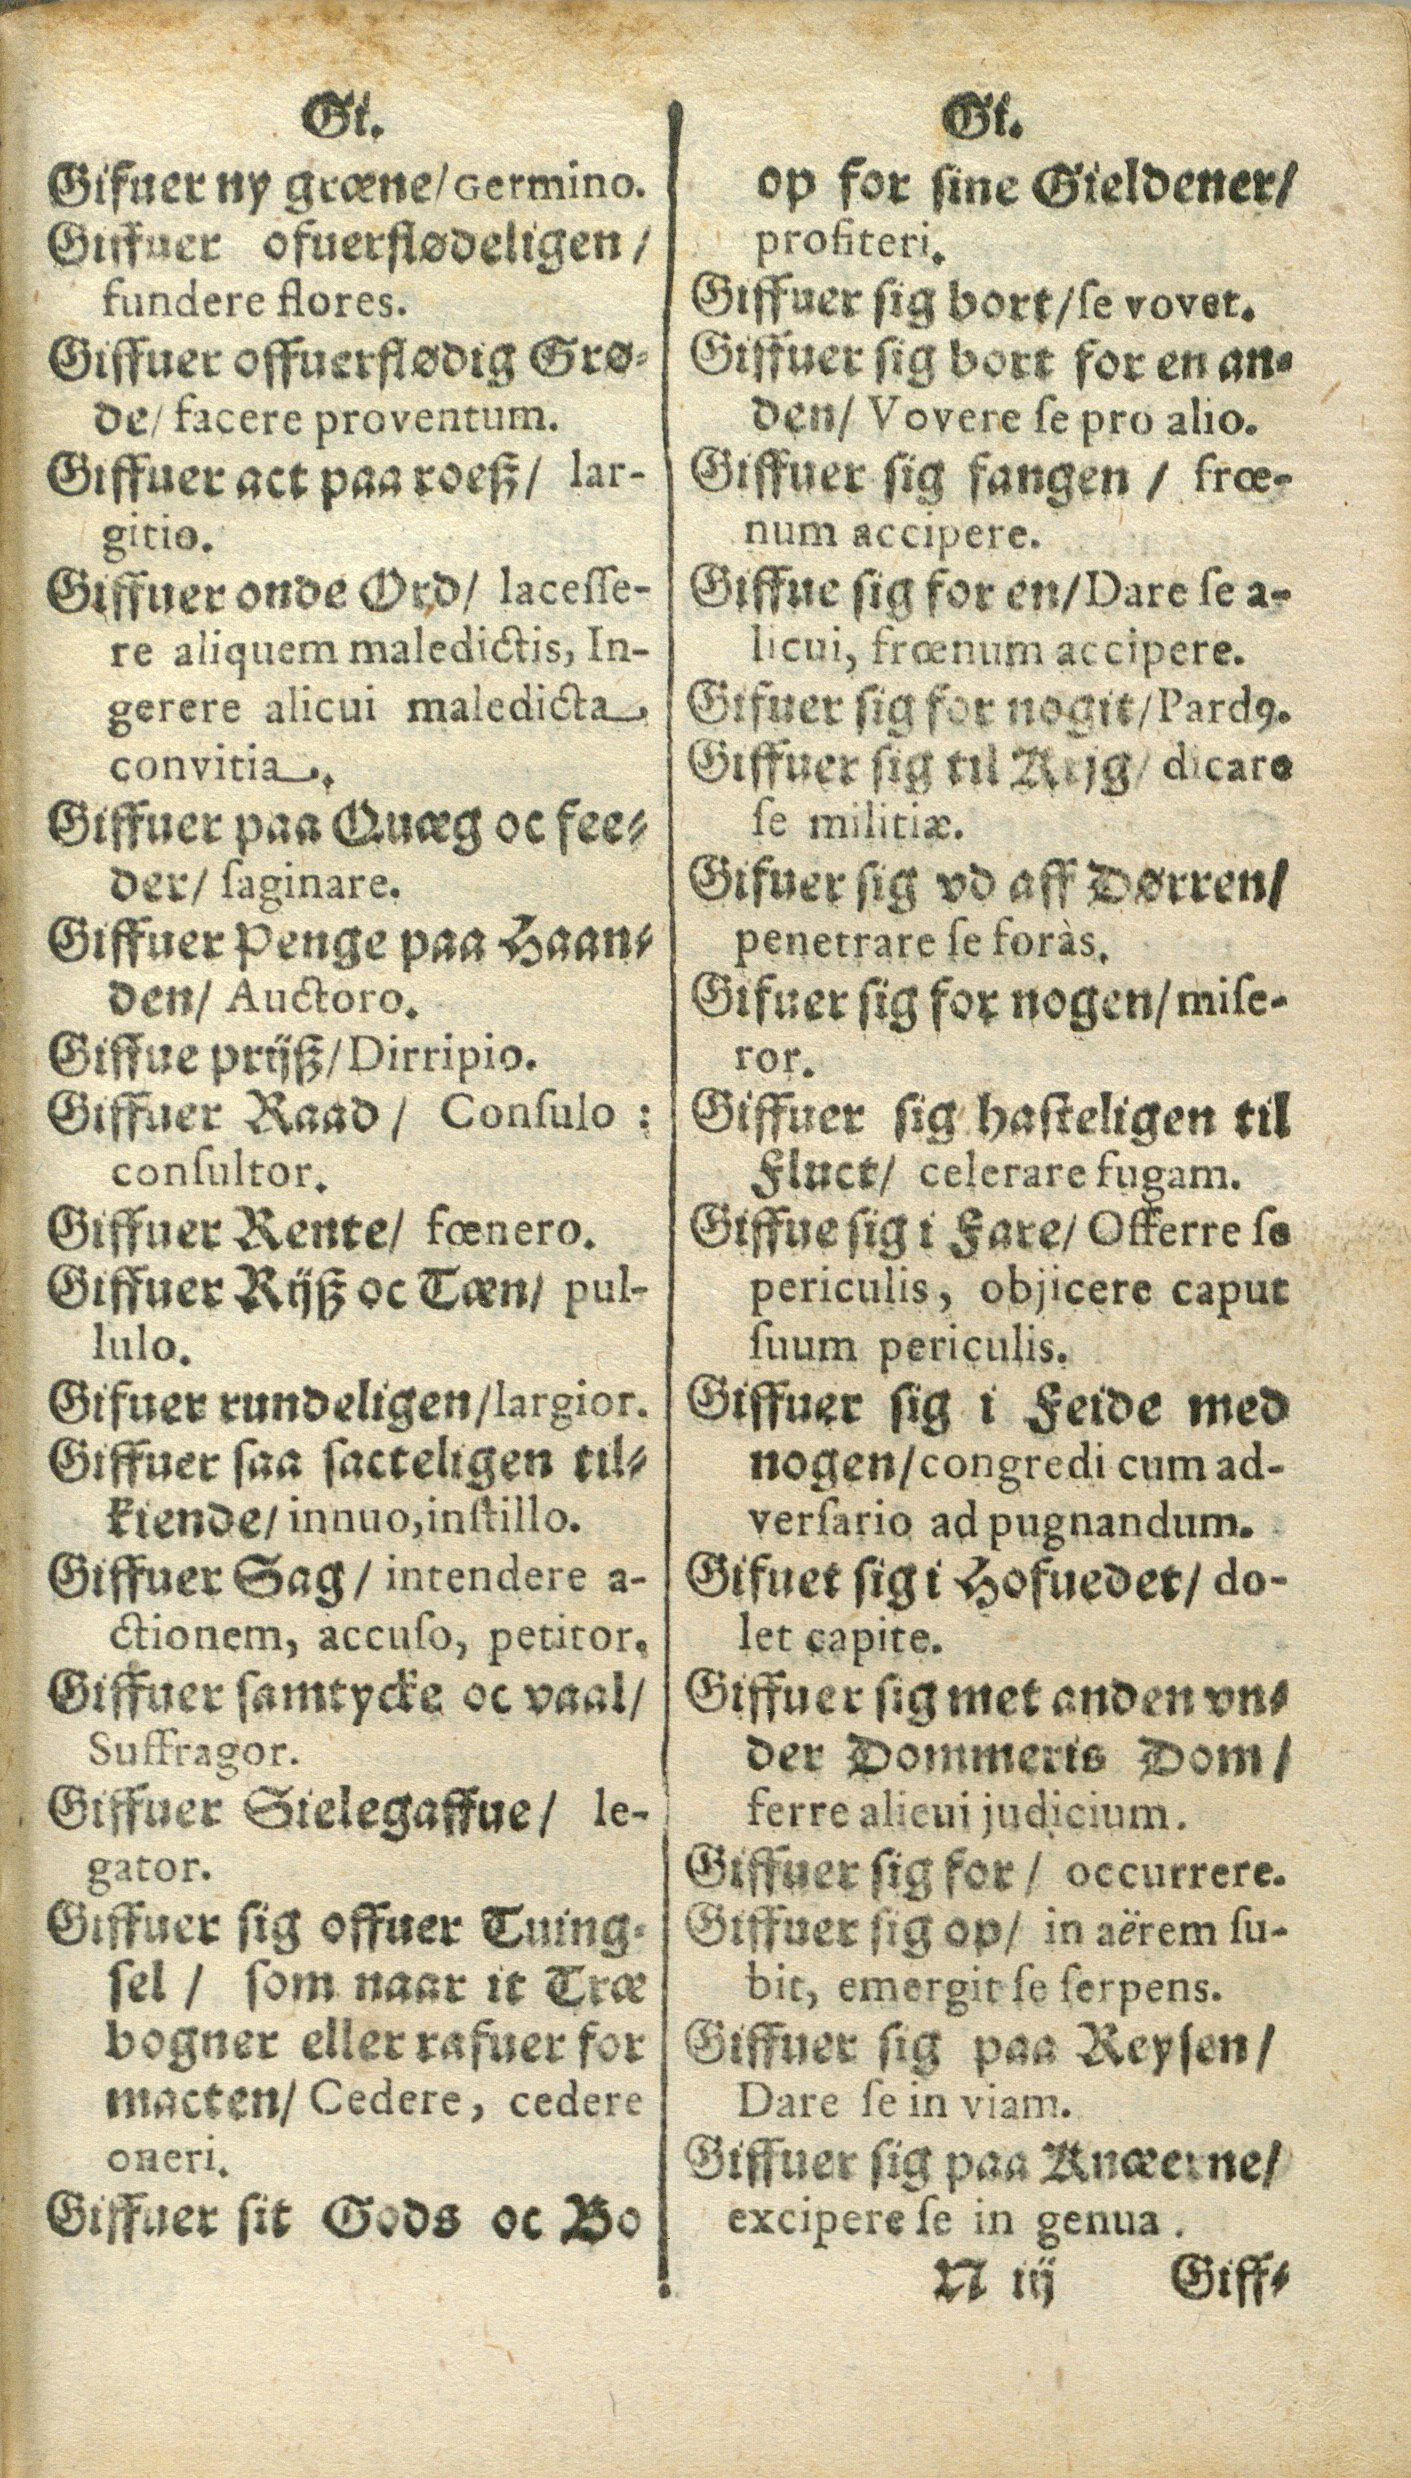 Gi.
Gifuer ny græne/ Germino.
Giffuer ofuerflødeligen/
fundere flores.
Giffuer offuerflødig Grø-
de/ facere proventum.
Giffuer act paa roeß/ lar-
gitio.
Giffuer onde Ord/ laceſſe-
re aliquem maledictis, In-
gerere alicui maledicta,
convitia.
Giffuer paa Quæg oc fee-
der/ ſaginare.
Giffuer Penge paa Haan-
den/ Auctoro.
Giffue prijß/ Dirripio.
Giffuer Raad/ Conſulo:
conſultor.
Giffuer Rente/ fœnero.
Giffuer Rijß oc Tæn/ pul-
lulo.
Gifuer rundeligen/ largior.
Giffuer ſaa ſacteligen til-
kiende/ innuo, inſtillo.
Giffuer Sag/ intendere a-
ctionem, accuſo, petitor.
Giffuer ſamtycke oc vaal/
Suffragor.
Giffuer Sielegaffue/ le-
gator.
Giffuer ſig offuer Tuing-
ſel/ ſom naar it Træ
bogner eller rafuer for
macten/ Cedere, cedere
oneri.
Giffuer ſit Gods oc Bo
Gi.
op for ſine Gieldener/
profiteri.
Giffuer ſig bort/ ſe vovet.
Giffuer ſig bort for en an-
den/ Vovere ſe pro alio.
Giffuer ſig fangen/ frœ-
num accipere.
Giffue ſig for en/ Dare ſe a-
licui, frœnum accipere.
Gifuer ſig for nogit/ Pardꝰ.
Giffuer ſig til Krijg/ dicare
ſe militiæ.
Gifuer ſig vd aff Dørren/
penetrare ſe foràs.
Gifuer ſig for nogen/ miſe-
ror.
Giffuer ſig haſteligen til
Fluct/ celerare fugam.
Giffue ſig i Fare/ Offerre ſe
periculis, objicere caput
ſuum periculis.
Giffuer ſig i Feide med
nogen/ congredi cum ad-
verſario ad pugnandum.
Gifuet ſig i Hofuedet/ do-
let capite.
Giffuer ſig met anden vn-
der Dommeris Dom/
ferre alicui judicium.
Giffuer ſig for/ occurrere.
Giffuer ſig op/ in aërem ſu-
bit, emergit ſe ſerpens.
Giffuer ſig paa Reyſen/
Dare ſe in viam.
Giffuer ſig paa Knæerne/
excipere ſe in genua.
N iij Giff-